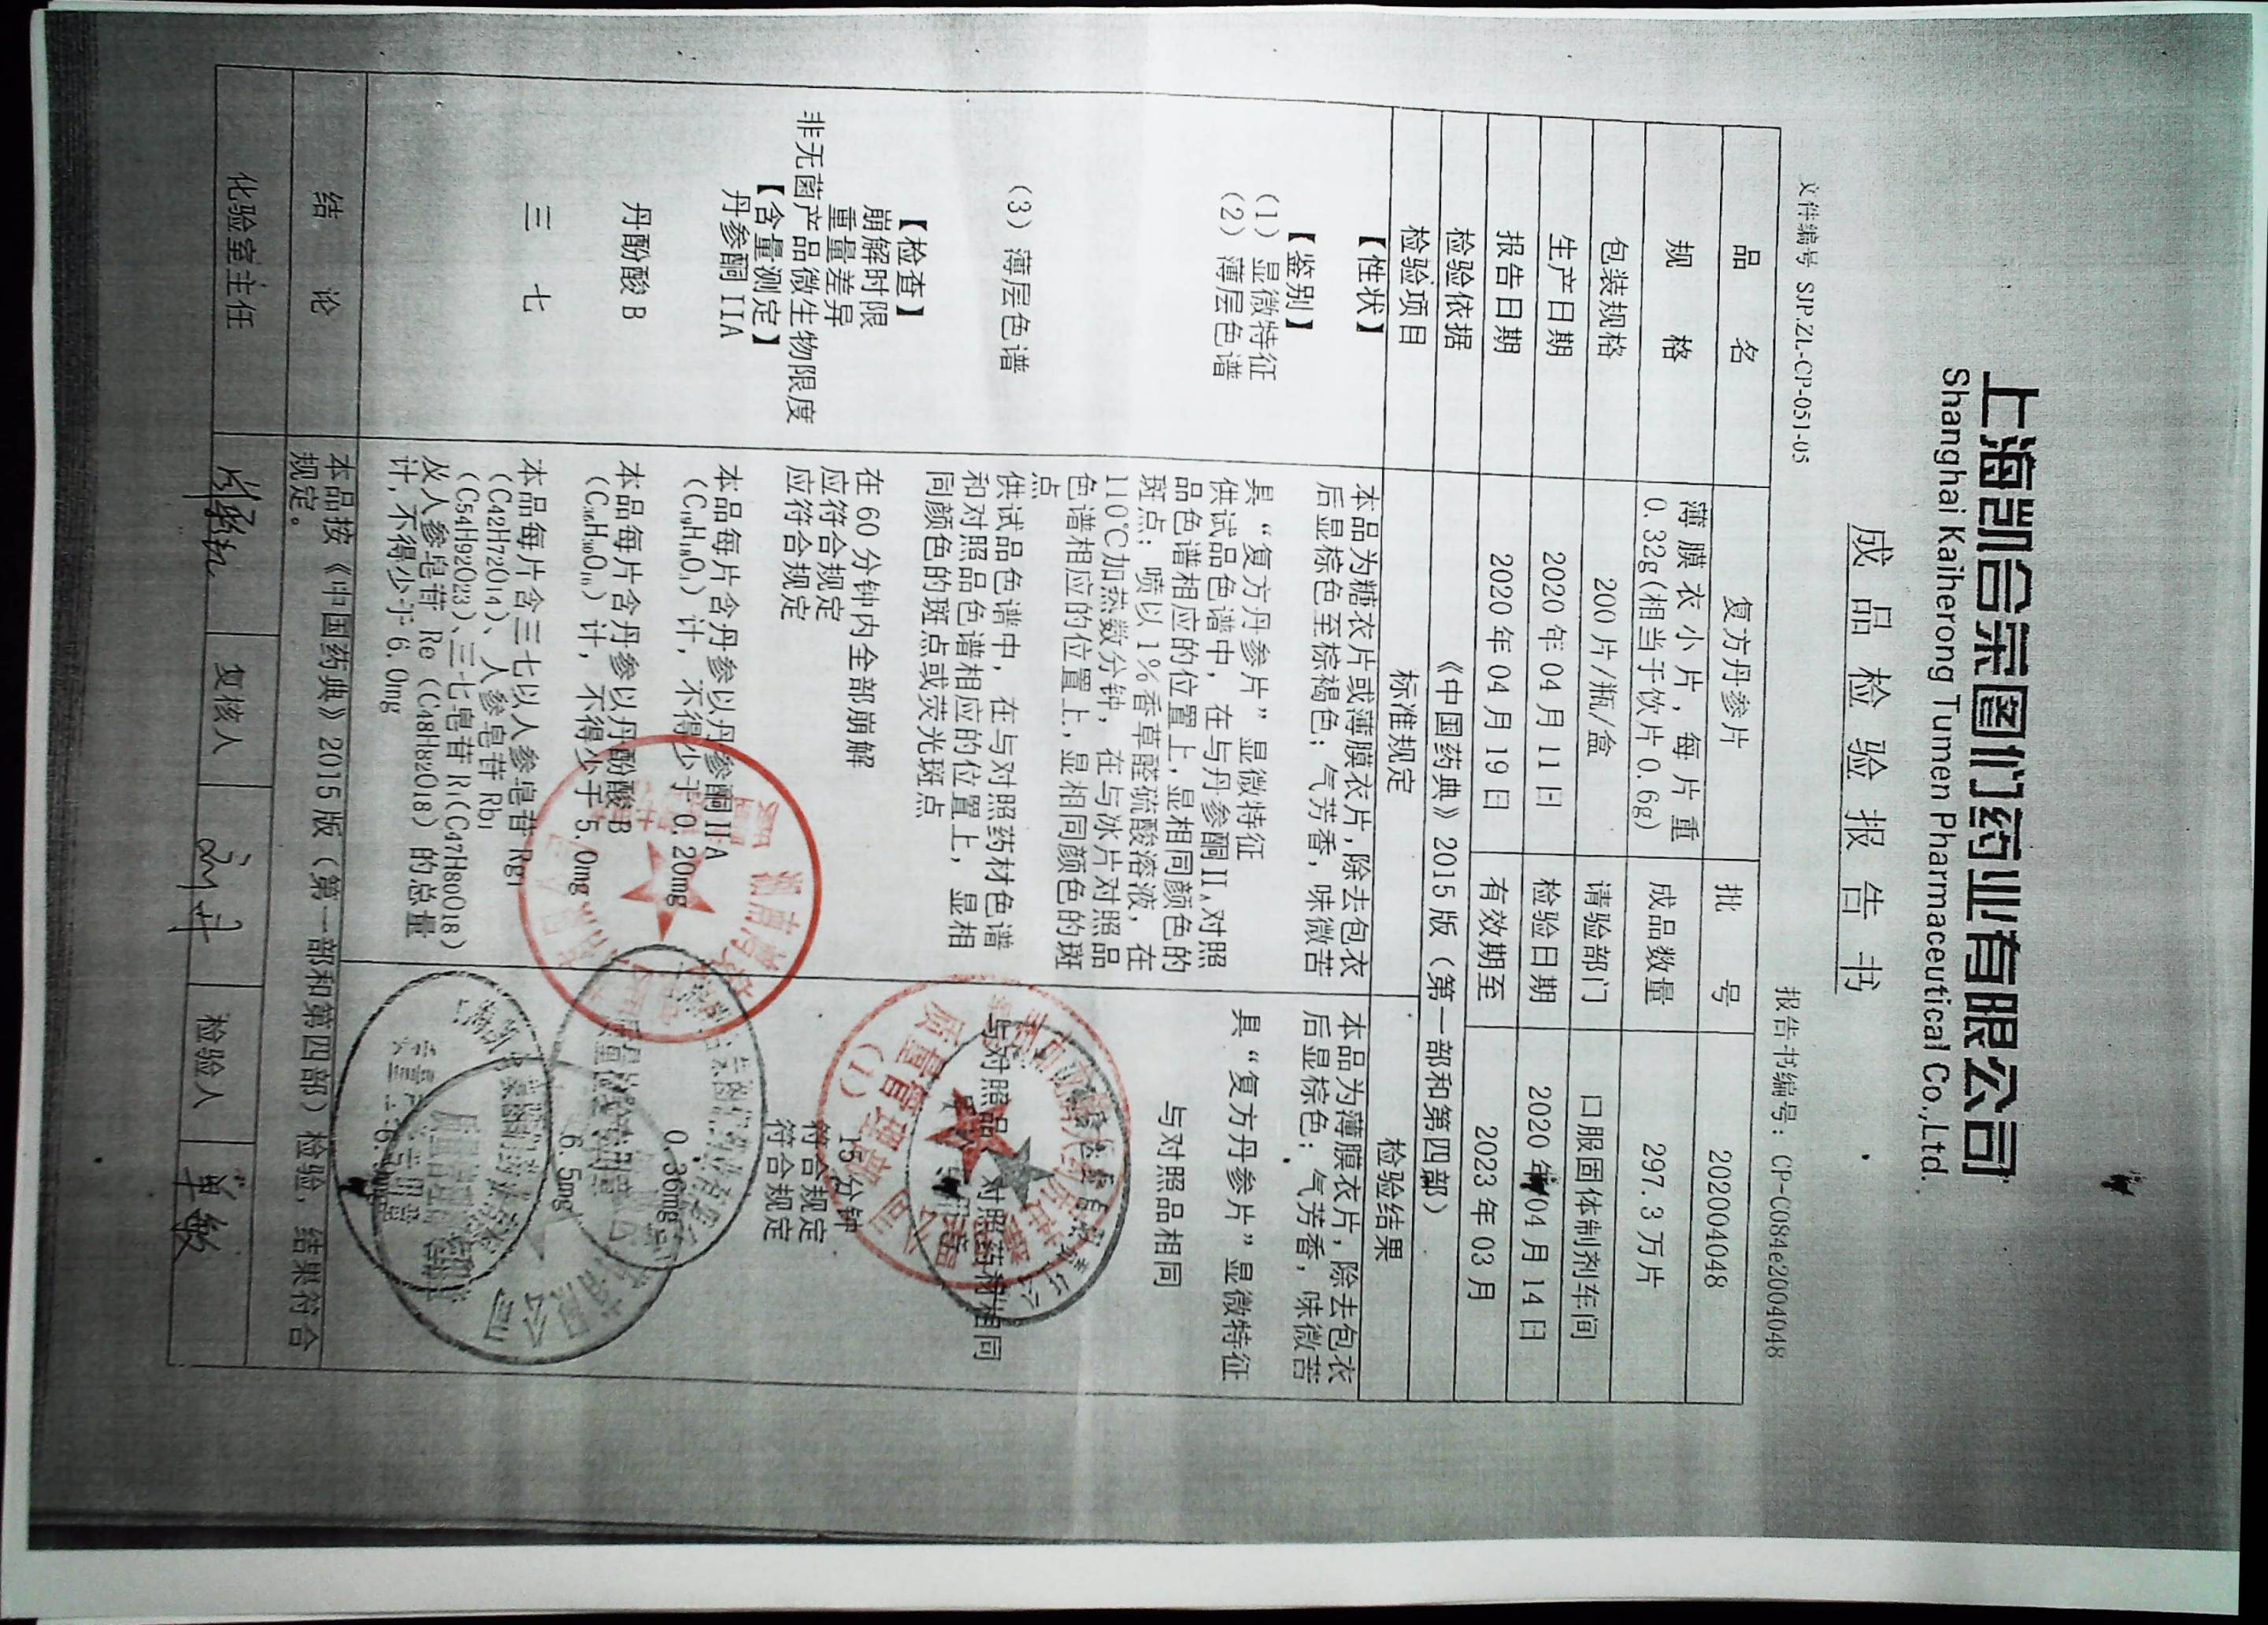 上海凯合荣图们药业有限公司
Shanghai Kaiherong Tumen Pharmaceutical Co.,Ltd.
成品检验报告书
文件编号 SJP.ZL-CP-051-05 报告书编号：CP-C084e2004048
品名 复方丹参片 批号 202004048
规格 薄膜衣小片，每片重 0.32g(相当于饮片 0.6g) 成品数量 297.3 万片
包装规格 200 片/瓶/盒 请验部门 口服固体制剂车间
生产日期 2020 年 04 月 11 日 检验日期 2020 年 04 月 14 日
报告日期 2020 年 04 月 19 日 有效期至 2023 年 03 月
检验依据 《中国药典》2015 版（第一部和第四部）
检验项目 标准规定 检验结果
【性状】 本品为糖衣片或薄膜衣片，除去包衣 本品为薄膜衣片，除去包衣
后显棕色至棕褐色；气芳香，味微苦 后显棕色；气芳香，味微苦
【鉴别】
（1）显微特征 具“复方丹参片”显微特征 具“复方丹参片”显微特征
（2）薄层色谱 供试品色谱中，在与丹参酮ⅡA对照
品色谱相应的位置上，显相同颜色的
斑点；喷以 1%香草醛硫酸溶液，在 与对照品相同
110℃加热数分钟，在与冰片对照品
色谱相应的位置上，显相同颜色的斑
点
（3）薄层色谱 供试品色谱中，在与对照药材色谱 与对照品、对照药材相同
和对照品色谱相应的位置上，显相
同颜色的斑点或荧光斑点
【检查】
崩解时限 在 60 分钟内全部崩解 15 分钟
重量差异 应符合规定 符合规定
非无菌产品微生物限度 应符合规定 符合规定
【含量测定】
丹参酮 IIA 本品每片含丹参以丹参酮ⅡA 0.36mg
（C₁₉H₁₈O₃）计，不得少于 0.20mg
丹酚酸 B 本品每片含丹参以丹酚酸 B 6.5mg
（C₃₆H₃₀O₁₆）计，不得少于 5.0mg
三七 本品每片含三七以人参皂苷 Rg1
（C42H72O14）、人参皂苷 Rb1
（C54H92O23）、三七皂苷 R1(C47H80O18)
及人参皂苷 Re（C48H82O18）的总量
计，不得少于 6.0mg
结论 本品按《中国药典》2015 版（第一部和第四部）检验，结果符合
规定。
化验室主任 复核人 检验人 单敏
质量管理部
（1）